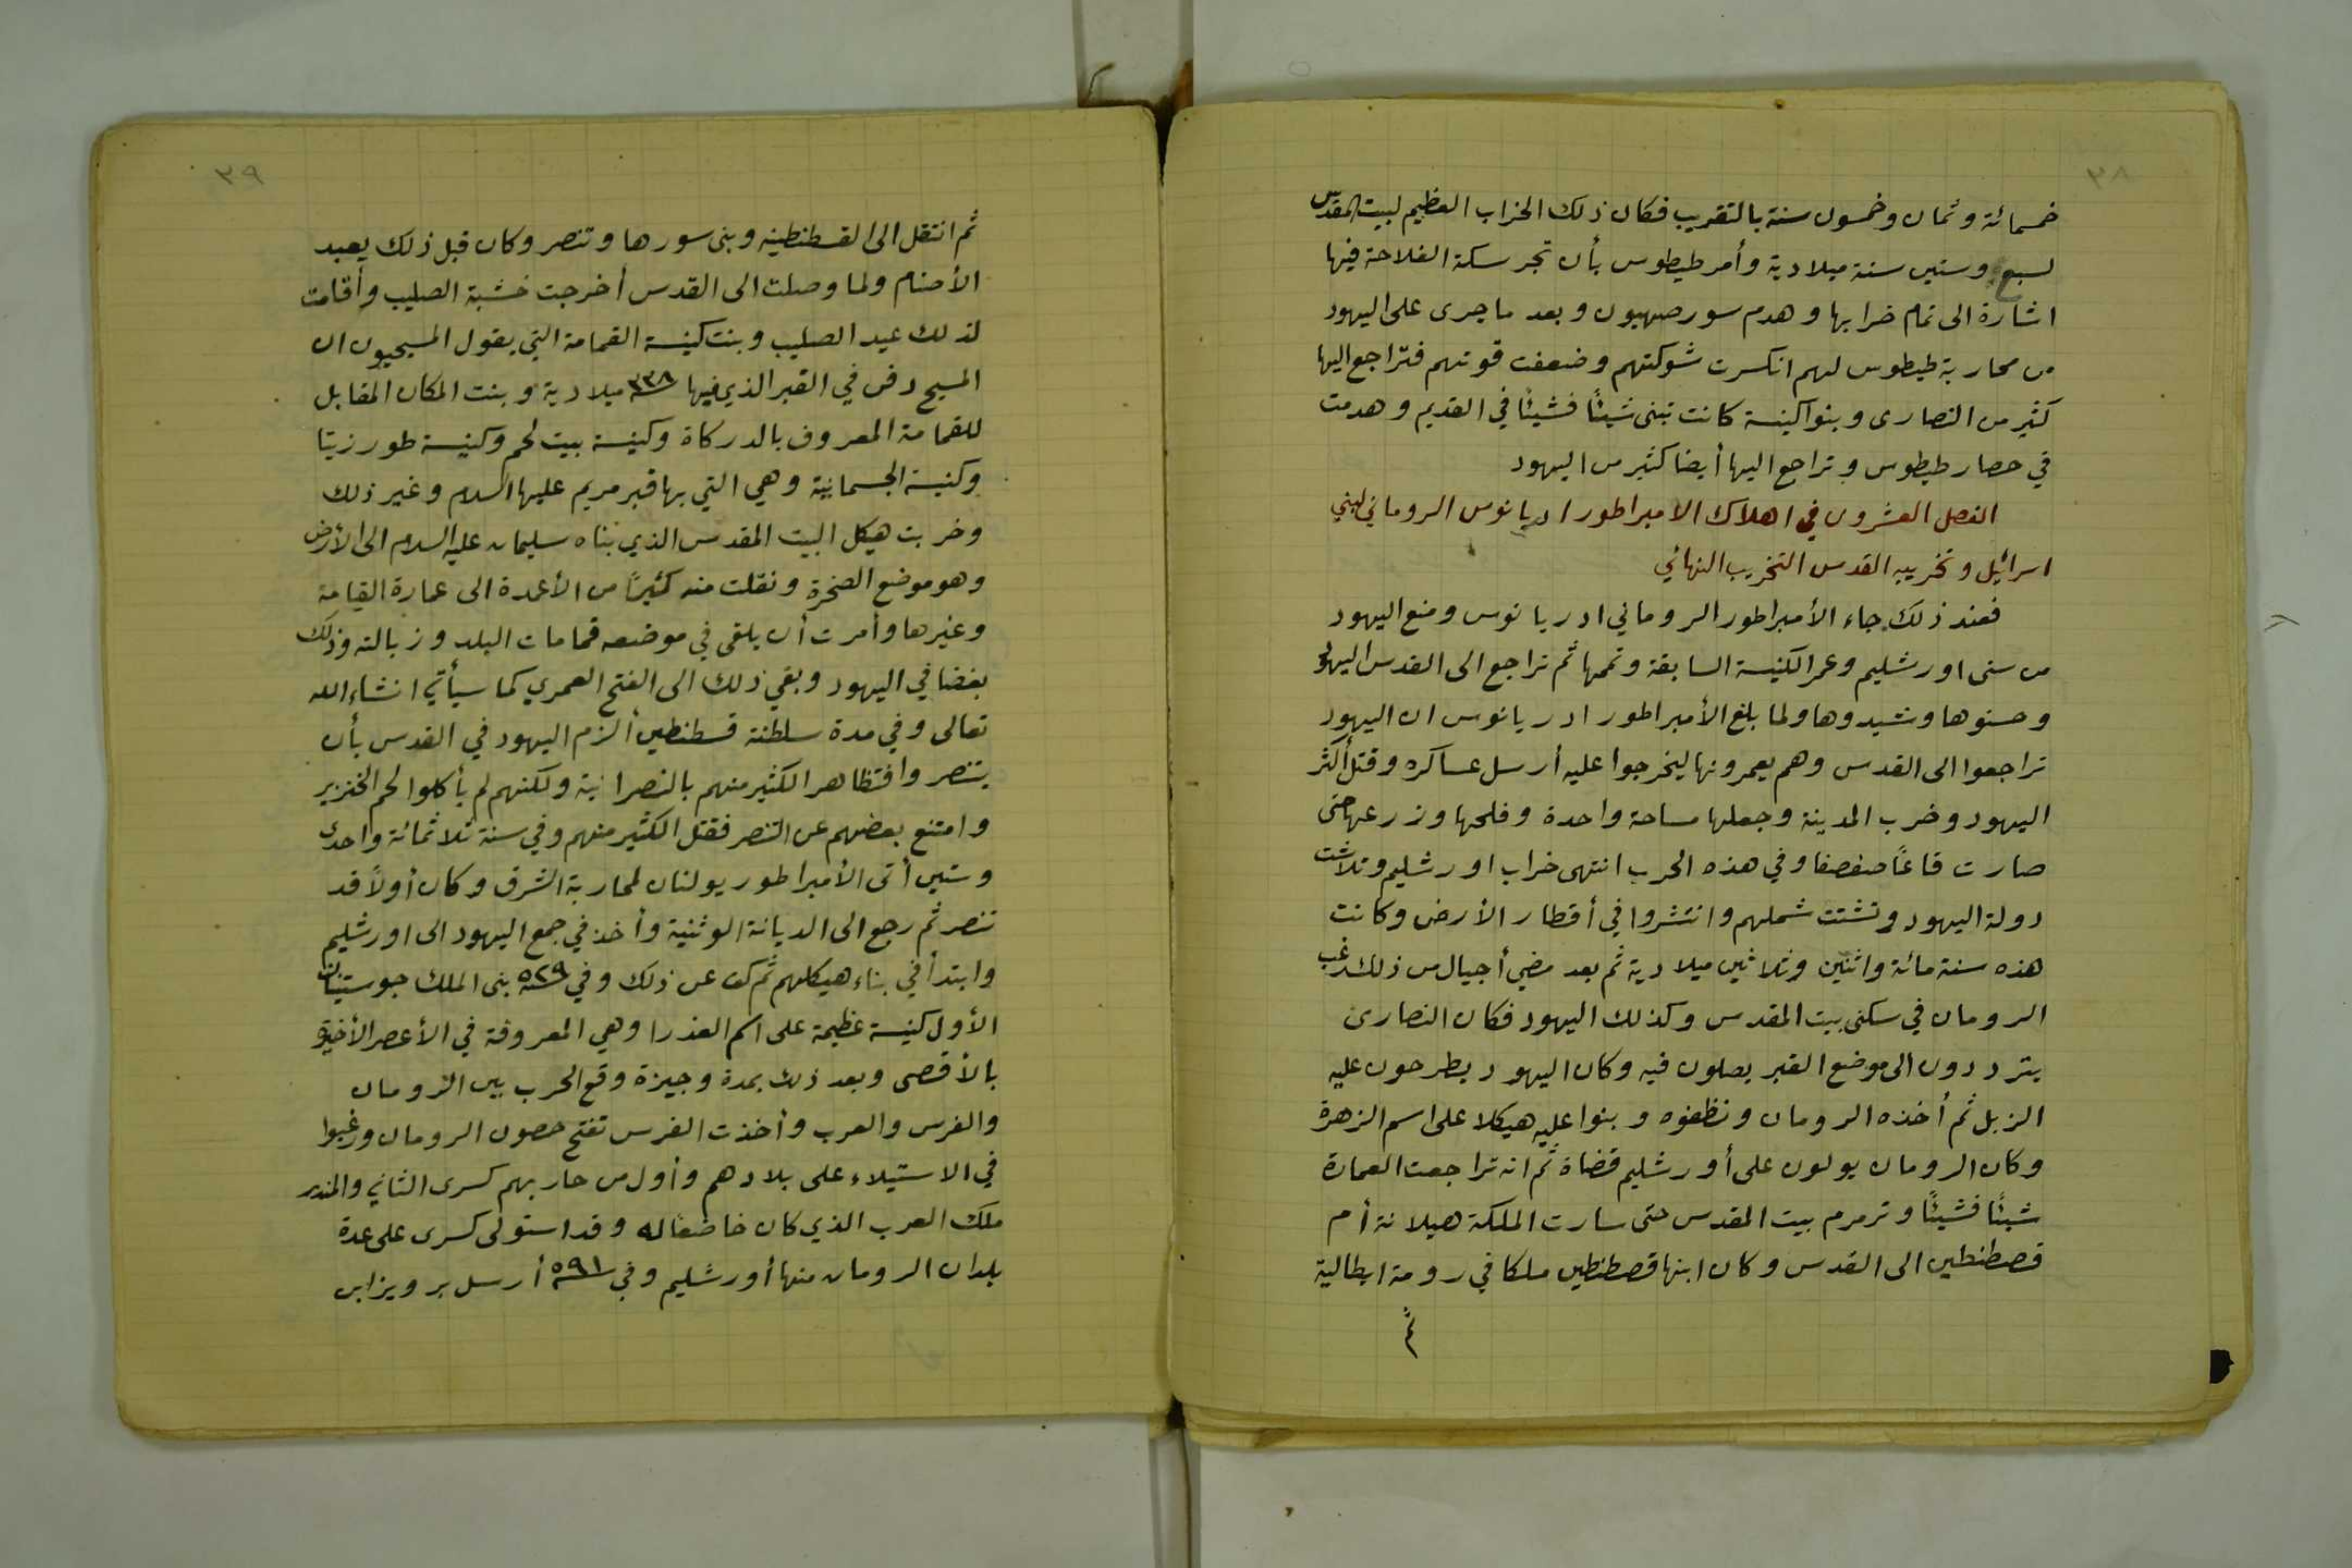 ٣٨
خمسمائة وثمان وخمسون سنة بالتقريب فكان ذلك الخراب العظيم لبيت المقدس
لسبع وستين سنة ميلادية وأمر طيطوس بأن تجر سكة الفلاحة فيها
اشارة الى تمام خرابها وهدم سور صهيون وبعد ما جرى على اليهود
من محاربة طيطوس لهم انكسرت شوكتهم وضعفت قوتهم فتراجع اليها
كثير من النصارى وبنوا كنيسة كانت تبنى شيئًا فشيئًا في القديم وهدمت
في حصار طيطوس وتراجع اليها أيضا كثير من اليهود
الفصل العشرون في اهلاك الامبراطور ادريانوس الروماني لبني
اسرائيل وتخريبه القدس التخريب النهائي
فعند ذلك جاء الأمبراطور الروماني ادريانوس ومنع اليهود
من سنى اورشليم وعمر الكنيسة السابقة وتممها ثم تراجع الى القدس اليهود
وحسنوها وشيدوها ولما بلغ الأمبراطور ادريانوس ان اليهود
تراجعوا الى القدس وهم يعمرونها ليخرجوا عليه أرسل عساكره وقتل أكثر
اليهود وخرب المدينة وجعلها مساحة واحدة وفلحها وزرعها حتى
صارت قاعًا صفصفا وفي هذه الحرب انتهى خراب اورشليم وتلاشت
دولة اليهود وتشتت شملهم وانتشروا في أقطار الأرض وكانت
هذه سنة مائة واثنين وثلاثين ميلادية ثم بعد مضي أجيال من ذلك رغب
الرومان في سكنى بيت المقدس وكذلك اليهود فكان النصارى
يترددون الى موضع القبر يصلون فيه وكان اليهود يطرحون عليه
الزبل ثم أخذه الرومان ونظفوه وبنوا عليه هيكلا على اسم الزهرة
وكان الرومان يولون على أورشليم قضاة ثم انه تراجعت العمارة
شيئًا فشيئًا وترمرم بيت المقدس حتى سارت الملكة هيلانة أم
قصطنطين الى القدس وكان ابنها قصطنطين ملكا في رومة ايطالية
ثم
٣٩
ثم انتقل الى القسطنطينه وبنى سورها وتنصر وكان قبل ذلك يعبد
الأصنام ولما وصلت الى القدس أخرجت خشبة الصليب وأقامت
لذلك عيد الصليب وبنت كنيسة القمامة التي يقول المسيحيون ان
المسيح دفن في القبر الذي فيها ٣٣٨ ميلادية وبنت المكان المقابل
للقمامة المعروف بالدركاة وكنيسة بيت لحم وكنيسة طور زيتا
وكنيسة الجسمانية وهي التي بها قبر مريم عليها السلام وغير ذلك
وخربت هيكل البيت المقدس الذي بناه سليمان عليه السلام الى الأرض
وهو موضع الصخرة ونقلت منه كثيرًا من الأعمدة الى عمارة القيامة
وغيرها وأمرت أن يلقى في موضعه قمامات البلد وزبالته وذلك
بغضا في اليهود وبقي ذلك الى الفتح العمري كما سيأتي انشاء الله
تعالى وفي مدة سلطنة قسطنطين ألزم اليهود في القدس بأن
يتنصروا فتظاهر الكثير منهم بالنصرانية ولكنهم لم يأكلوا لحم الخنزير
وامتنع بعضهم عن التنصر فقتل الكثير منهم وفي سنة ثلاثمائة واحدى
وستين أتى الأمبراطور يولنان لمحاربة الشرق وكان أولًا قد
تنصر ثم رجع الى الديانة الوثنية وأخذ في جمع اليهود الى اورشليم
وابتدأ في بناء هيكلهم ثم كف عن ذلك وفي ٥٢٩ بنى الملك جوستنيان
الأول كنيسة عظيمة على اسم العذرا وهي المعروفة في الأعصر الأخيرة
بالأقصى وبعد ذلك بمدة وجيزة وقع الحرب بين الرومان
والفرس والعرب وأخذت الفرس تفتح حصون الرومان ورغبوا
في الاستيلاء على بلادهم وأول من حاربهم كسرى الثاني والمنذر
ملك العرب الذي كان خاضعًا له وقد استولى كسرى على عدة
بلدان الرومان منها أورشليم وفي ٥٩١ أرسل برويز ابن